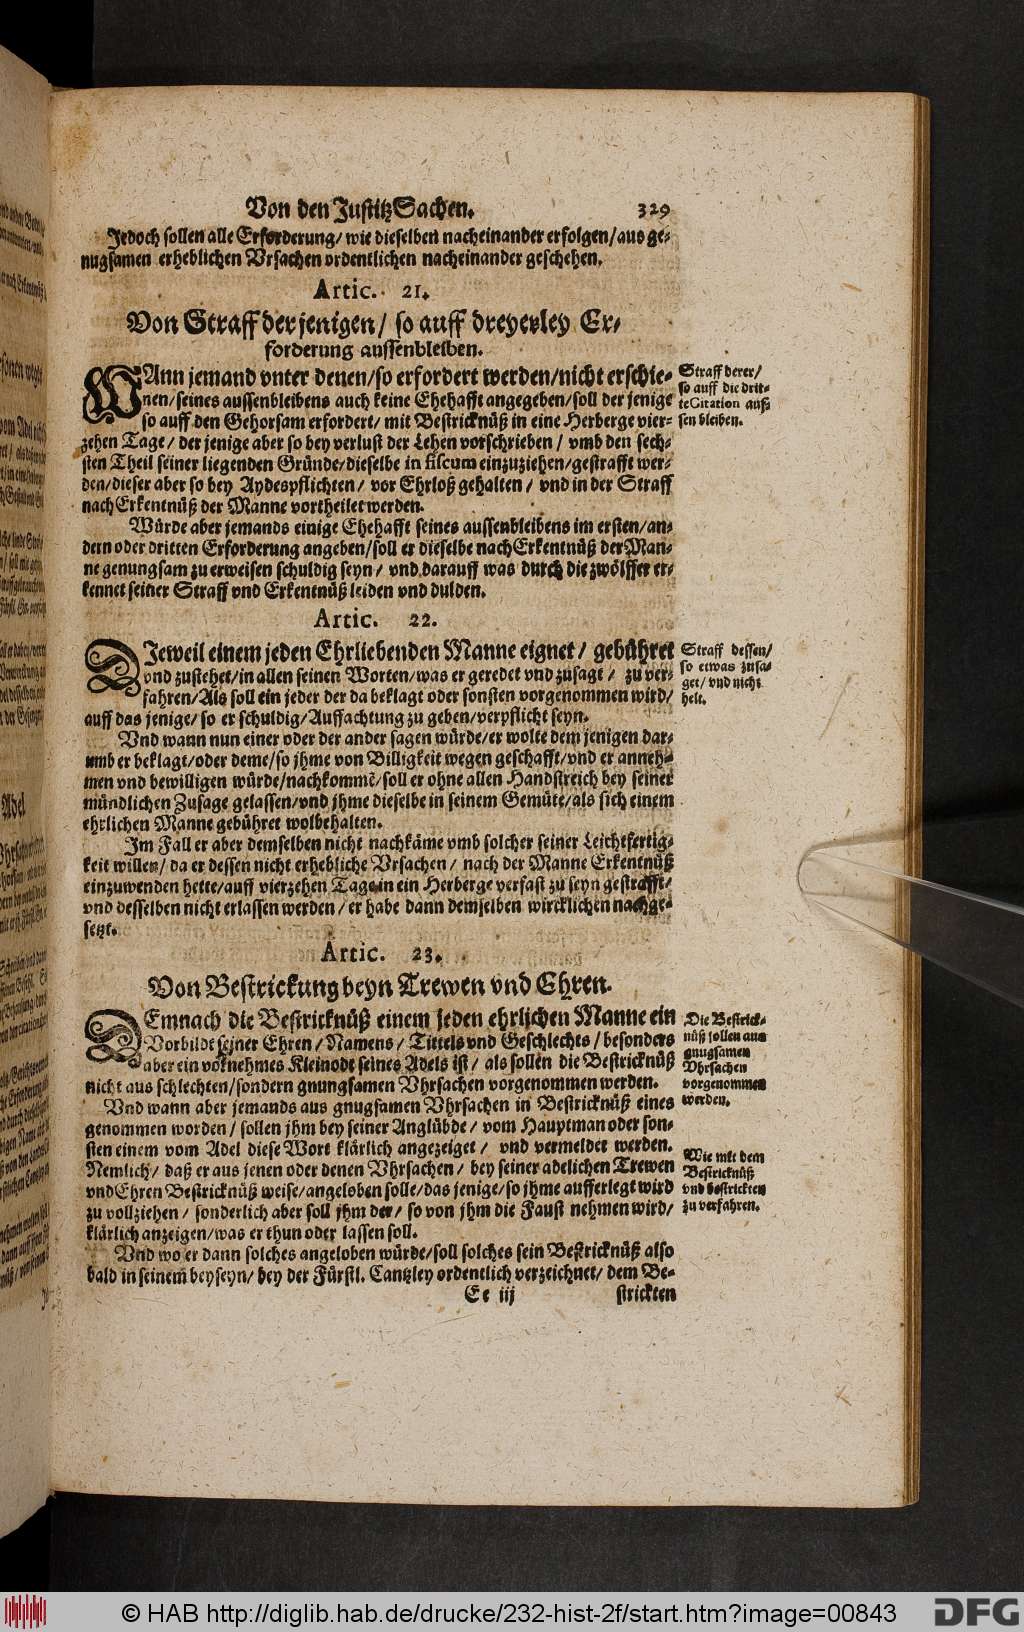 Von den Justitz Sachen. 329
Jedoch sollen alle Erforderung/ wie dieselben nacheinander erfolgen/ aus ge-
nugsamen erheblichen Vrsachen ordentlichen nacheinander geschehen.
Artic. 21.
Von Straff der jenigen/ so auff dreyerley Er-
forderung aussenbleiben.
WAnn jemand vnter denen/ so erfordert werden/ nicht erschie-
nen/ seines aussenbleibens auch keine Ehehafft angegeben/ soll der jenige
so auff den Gehorsam erfordert/ mit Bestricknüß in eine Herberge vier-
zehen Tage/ der jenige aber so bey verlust der Lehen vorschrieben/ vmb den sech-
sten Theil seiner liegenden Gründe/ dieselbe in fiscum einzuziehen/ gestrafft wer-
den/ dieser aber so bey Aydespflichten/ vor Ehrloß gehalten/ vnd in der Straff
nach Erkentnüß der Manne vortheilet werden.
Straff derer/
so auff die drit-
te Citation auß-
sen bleiben.
Würde aber jemands einige Ehehafft seines aussenbleibens im ersten/ an-
dern oder dritten Erforderung angeben/ soll er dieselbe nach Erkentnüß der Man-
ne genungsam zu erweisen schuldig seyn/ vnd darauff was durch die zwölffer er-
kennet seiner Straff vnd Erkentnüß leiden vnd dulden.
Artic. 22.
DJeweil einem jeden Ehrliebenden Manne eignet/ gebühret
vnd zustehet/ in allen seinen Worten/ was er geredet vnd zusagt/ zu ver-
fahren/ Als soll ein jeder der da beklagt oder sonsten vorgenommen wird/
auff das jenige/ so er schuldig/ Auffachtung zu geben/ verpflicht seyn.
Straff dessen/
so etwas zusa-
get/ vnd nicht
helt.
Vnd wann nun einer oder der ander sagen würde/ er wolte dem jenigen dar-
umb er beklagt/ oder deme/ so jhme von Billigkeit wegen geschafft/ vnd er anneh-
men vnd bewilligen würde/ nachkommẽ/ soll er ohne allen Handstreich bey seiner
mündlichen Zusage gelassen/ vnd jhme dieselbe in seinem Gemüte/ als sich einem
ehrlichen Manne gebühret wolbehalten.
Im Fall er aber demselben nicht nachkäme vmb solcher seiner Leichtfertig-
keit willen/ da er dessen nicht erhebliche Vrsachen/ nach der Manne Erkentnüß
einzuwenden hette/ auff vierzehen Tage in ein Herberge verfast zu seyn gestrafft/
vnd desselben nicht erlassen werden/ er habe dann demselben wircklichen nachge-
setzt.
Artic. 23.
Von Bestrickung beyn Trewen vnd Ehren.
DEmnach die Bestricknüß einem jeden ehrlichen Manne ein
Vorbildt seiner Ehren/ Namens/ Tittels vnd Geschlechts/ besonders
aber ein vornehmes Kleinodt seines Adels ist/ als sollen die Bestricknüß
nicht aus schlechten/ sondern gnungsamen Vhrsachen vorgenommen werden.
Die Bestrick-
nüß sollen aus
gnugsamen
Vhrsachen
vorgenommen
werden.
Vnd wann aber jemands aus gnugsamen Vhrsachen in Bestricknüß eines
genommen worden/ sollen jhm bey seiner Anglübde/ vom Hauptman oder son-
sten einem vom Adel diese Wort klärlich angezeiget/ vnd vermeldet werden.
Nemlich/ daß er aus jenen oder denen Vhrsachen/ bey seiner adelichen Trewen
vnd Ehren Bestricknüß weise/ angeloben solle/ das jenige/ so jhme aufferlegt wird
zu vollziehen/ sonderlich aber soll jhm der/ so von jhm die Faust nehmen wird/
klärlich anzeigen/ was er thun oder lassen soll.
Wie mit dem
Bestricknüß
vnd bestrickten
zu verfahren.
Vnd wo er dann solches angeloben würde/ soll solches sein Bestricknüß also
bald in seinem beyseyn/ bey der Fürstl. Cantzley ordentlich verzeichnet/ dem Be-
Ee iij strickten
© HAB http://diglib.hab.de/drucke/232-hist-2f/start.htm?image=00843
DFG